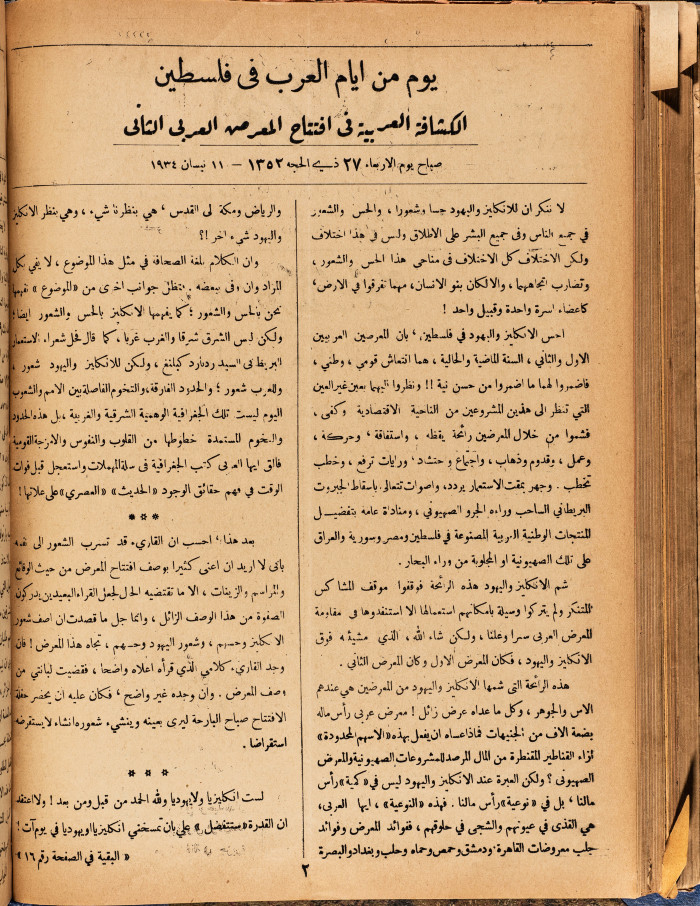 يوم من ايام العرب فى فلسطين
الكشافة العربية فى افتتاح المعرض العربى الثانى
صباح يوم الاربعاء ٢٧ ذي الحجه ١٣٥٢ – ١١ نيسان ١٩٣٤
لا ننكر ان للانكليز واليهود حسا وشعورا ، والحس والشعور
فى جميع الناس وفى جميع البشر على الاطلاق وليس فى هذا اختلاف
ولكن الاختلاف كل الاختلاف فى مناحي هذا الحس والشعور ،
وتضارب اتجاههما ، والا لكان بنو الانسان، مهما تفرقوا في الارض،
كاعضاء اسرة واحدة وقبيل واحد !
احس الانكليز واليهود في فلسطين، بان للمعرضين العربيين
الاول والثاني ، السنة الماضية والحالية ، هما انتعاش قومي ، وطني ،
فاضمروا لهما ما اضمروا من حسن نية !! ونظروا اليهما بعين غير العين
التي تنظر الى هذين المشروعين من الناحية الاقتصادية وكفى ،
فشموا من خلال المعرضين رائحة يقظه ، واستفاقة ، وحركة ،
وعمل ، وقدوم وذهاب ، واجتماع واحتشاد، ورايات ترفع ، وخطب
تخطب . وجهر بمقت الاستعمار يردد، واصوات تتعالى باسقاط الجبروت
البريطاني الساحب وراءه الجرو الصهيوني ، ومناداة عامه بتفضيل
المنتجات الوطنية العربية المصنوعة في فلسطين ومصر وسورية والعراق
على تلك الصهيونية او المجلوبة من وراء البحار .
شم الانكليز واليهود هذه الرائحة فوقفوا موقف المشاكس
المتنكر ولم يتركوا وسيلة بامكانهم استعمالها الا استنفدوها في مقاومة
المعرض العربى سرا وعلنا ، ولكن شاء الله ، الذي مشيئته فوق
الانكليز واليهود ، فكان المعرض الاول وكان المعرض الثاني .
هذه الرائحة التى شمها الانكليز واليهود من المعرضين هي عندهم
الاس والجوهر ، وكل ما عداه عرض زائل ! معرض عربي رأس ماله
بضعة الاف من الجنيهات فماذا عساه ان يفعل بهذه «الاسهم المحدودة»
ازاء القناطير المقنطرة من المال المرصد للمشروعات الصهيونية والمعرض
الصهيونى ؟ ولكن العبرة عند الانكليز واليهود ليس في «كمية» رأس
مالنا ، بل في «نوعية» رأس مالنا . فهذه «النوعية» ، ايها العربى،
هي القذى في عيونهم والشجى في حلوقهم ، ففوائد المعرض وفوائد
جلب معروضات القاهرة ودمشق وحمص وحماه وحلب وبغداد والبصرة
والرياض ومكة الى القدس ، هي بنظرنا شيء ، وهي بنظر الانكليز
واليهود شيء اخر !؟
وان الكلام بلغة الصحافة في مثل هذا الموضوع ، لا يفي بكل
المراد وان وفى ببعضه . فتظل جوانب اخرى من «الموضوع» نفهمها
نحن بالحس والشعور ؛ كما يفهمها الانكليز بالحس والشعور ايضا ؛
ولكن ليس الشرق شرقا والغرب غربا ، كما قال فحل شعراء الاستعمار
البريطانى السيد رديارد كبلنغ ، ولكن للانكليز واليهود شعور ،
وللعرب شعور ؛ والحدود الفارقة، والتخوم الفاصلة بين الامم والشعوب
اليوم ليست تلك الجغرافية الوهمية الشرقية والغربية ، بل هذه الحدود
والتخوم المستمدة خطوطها من القلوب والنفوس والامزجة القومية
فالق ايها العربى كتب الجغرافية في سلة المهملات واستعجل قبل فوات
الوقت في فهم حقائق الوجود «الحديث» «العصري» على علاتها !
***
بعد هذا ، احسب ان القاريء قد تسرب الشعور الى نفسه
بانى لا اريد ان اعنى كثيرا بوصف افتتاح المعرض من حيث الوقائع
والمراسم والزينات ، الا ما تقتضيه الحال لجعل القراء البعيدين يدركون
الصفوة من هذا الوصف الزائل ، وانما جل ما قصدت ان اصف شعور
الانكليز وحسهم ، وشعور اليهود وحسهم ، تجاه هذا المعرض ! فان
وجد القاريء كلامي الذي قرأه اعلاه واضحا ، فقضيت لبانتي من
وصف المعرض . وان وجده غير واضح ، فكان عليه ان يحضر حفلة
الافتتاح صباح البارحة ليرى بعينه وينشيء شعوره انشاء لا يستقرضه
استقراضا .
***
لست انكليزيا ولا يهوديا ولله الحمد من قبل ومن بعد ! ولا اعتقد
ان القدرة «ستتفضل» علي بان تمسخني انكليزيا او يهوديا في يوم آت !
« البقية في الصفحة رقم ١٦ »
٢